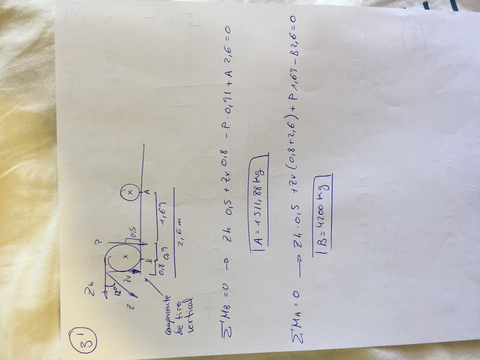 3'
Zh
P
12°
Zv
Z
0,5
B
A
0,8 0,91 1,69
2,6 m
componente
de tiro
vertical
ΣM_B = 0 → Zh · 0,5 + Zv 0,8 - P · 0,91 + A 2,6 = 0
A = 1511,88 kg
ΣM_A = 0 → Zh · 0,5 + Zv (0,8 + 2,6) + P 1,69 - B 2,6 = 0
B = 4200 kg